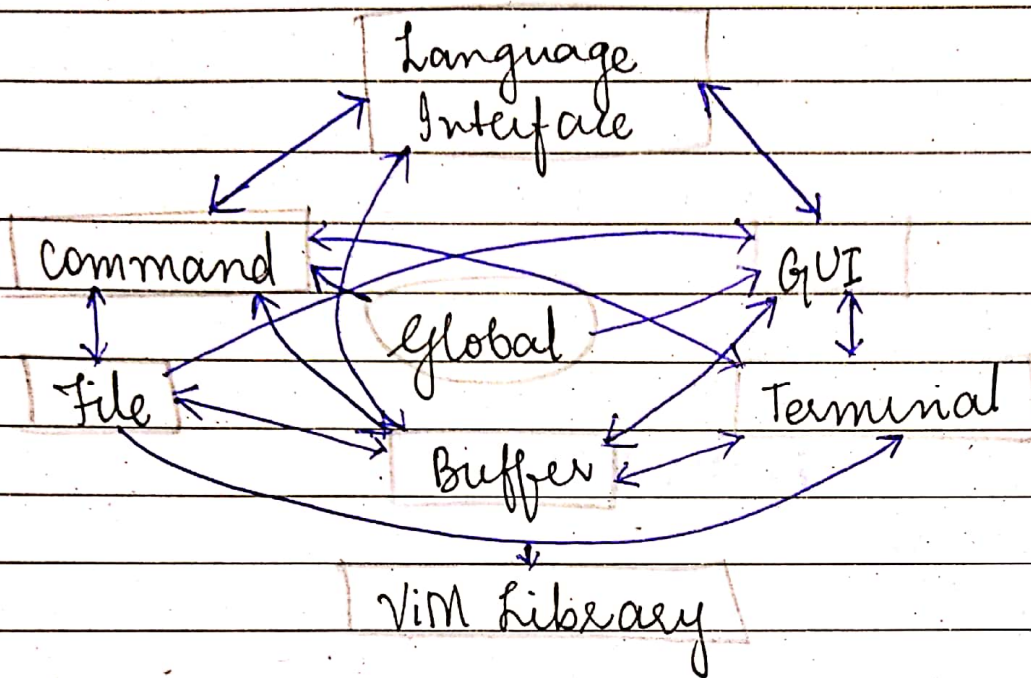 Language
Interface
Command
GUI
Global
File
Terminal
Buffer
ViM Library